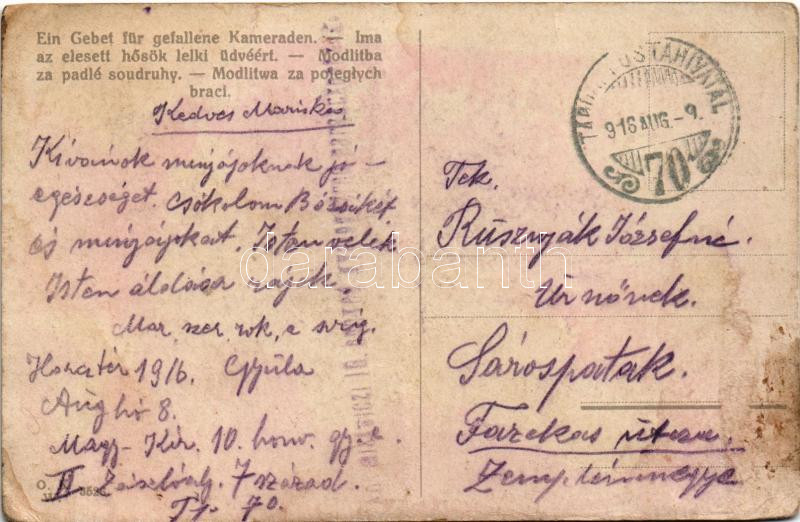 Ein Gebet für gefallene Kameraden. — Ima
az elesett hősök lelki üdvéért. — Modlitba
za padlé soudruhy. — Modlitwa za poległych
braci.
Kedves Mariska
Kívánok mnyájoknak jó -
egésséget. Csókolom Bözsikét
és mnyájokat. Isten velék
Isten áldása rájok
Mar szer rok, a
Harctér 1916. Gyula
Aug hó 8.
Magy. Kir. 10. honv. gy. e.
II Zászlóalj. 7 század.
Tp. 70.
TÁBORI POSTAHIVATAL
916 AUG. -9.
70
Tek.
Rusznyák Józsefné
Urnőnek.
Sárospatak.
Fazekas utca.
Zemplénmegye
darabanth